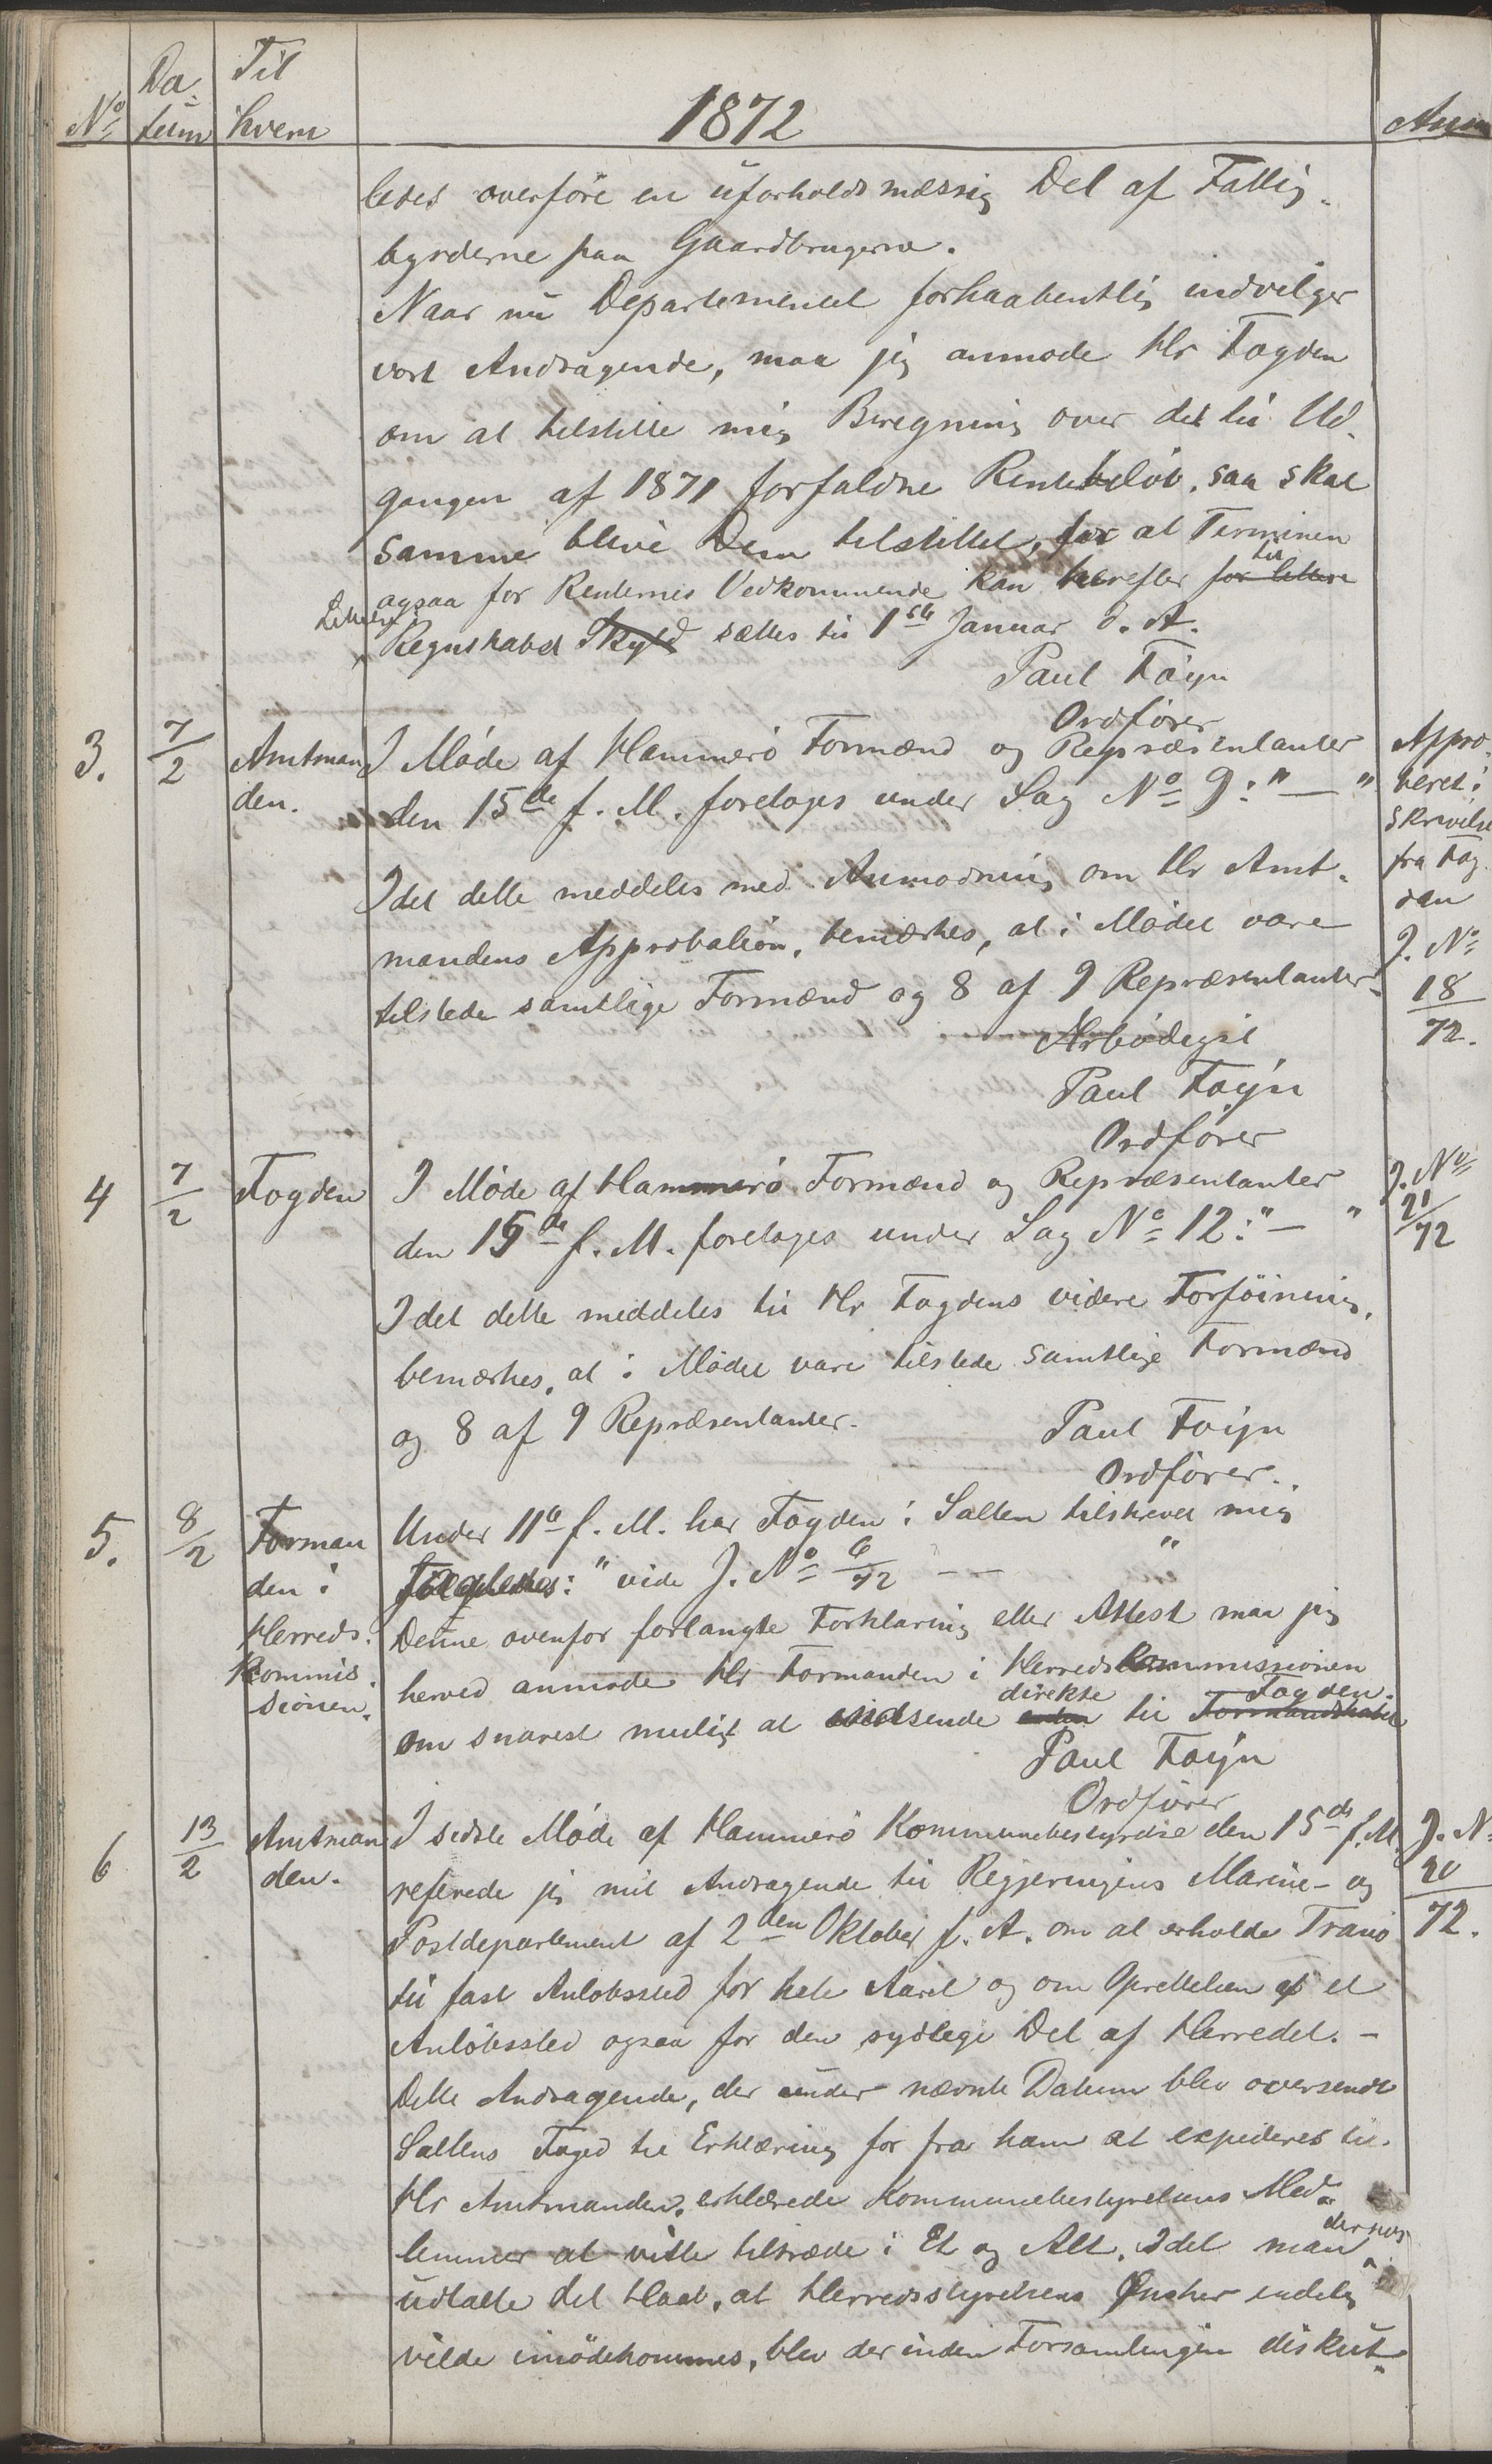 No Datum Til hvem 1872 Anm
ledes overføre en uforholdsmæssig Del af Fattig-
byrderne paa Gaardbrugerne.
Naar nu Departementet forhaabentlig indvilger
vort Andragende, maa jeg anmode Hr Fogden
om at tilstille mig Beregning over det til Ud-
gangen af 1871 forfaldne Rentebeløb, saa skal
samme blive Dem tilstillet, for at Terminen
ogsaa for Renternes Vedkommende kan herefter for lettere til
Lettelse Regnskabet Skyld sættes til 1ste Januar d. A.
Paul Føyn
Ordfører
3. 7/2 Amtmanden.
I Møde af Hammerø Formænd og Repræsentanter
den 15de f. M. foretoges under Sag No 9: " — "
Idet dette meddeles med Anmodning om Hr Amt-
mandens Approbation, bemærkes, at i Mødet vare
tilstede samtlige Formænd og 8 af 9 Repræsentanter.
Ærbødigst
Paul Føyn
Ordfører
Appro-
beret i
Skrivelse
fra Fog-
den
J. No
18
72.
4 7/2 Fogden
I Møde af Hammerø Formænd og Repræsentanter
den 15de f. M. foretoges under Sag No 12: " — "
Idet dette meddeles til Hr Fogdens videre Forføining,
bemærkes, at i Mødet vare tilstede samtlige Formænd
og 8 af 9 Repræsentanter.
Paul Føyn
Ordfører.
J. No
21
72
5. 8/2 Formanden i Herreds-Kommissionen.
Under 11te f. M. har Fogden i Salten tilskrevet mig
saaledes: " vide J. No 6/72 — — "
Denne ovenfor forlangte Forklaring eller Attest maa jeg
herved anmode Hr Formanden i Herredskommissionen
om snarest muligt at indsende direkte til Formandskabet Fogden.
Paul Føyn
Ordfører
6 13/2 Amtmanden.
I sidste Møde af Hammerø Kommunebestyrelse den 15de f. M.
refererede jeg mit Andragende til Regjeringens Marine- og
Postdepartement af 2den Oktober f. A. om at erholde Tranø
til fast Anløbssted for hele Aaret og om Oprettelsen af et
Anløbssted ogsaa for den sydlige Del af Herredet. -
Dette Andragende, der under nævnte Datum blev oversendt
Saltens Foged til Erklæring for fra ham at expederes til
Hr Amtmanden, erklærede Kommunebestyrelsens Med-
lemmer at ville tiltræde i Et og Alt. Idet man dernæst
udtalte det Haab, at Herredsstyrelsens Ønsker endelig
vilde imødekommes, blev der inden Forsamlingen diskut-
J. No
20
72.